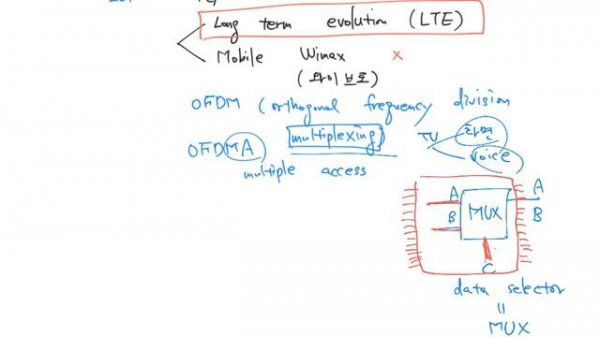 Long term evolution (LTE)
Mobile Wimax x
(와이브로)
OFDM (orthogonal frequency division
multiplexing)
OFDMA
multiple access
TV 화면
voice
A MUX A
B B
C
data selector
=
MUX